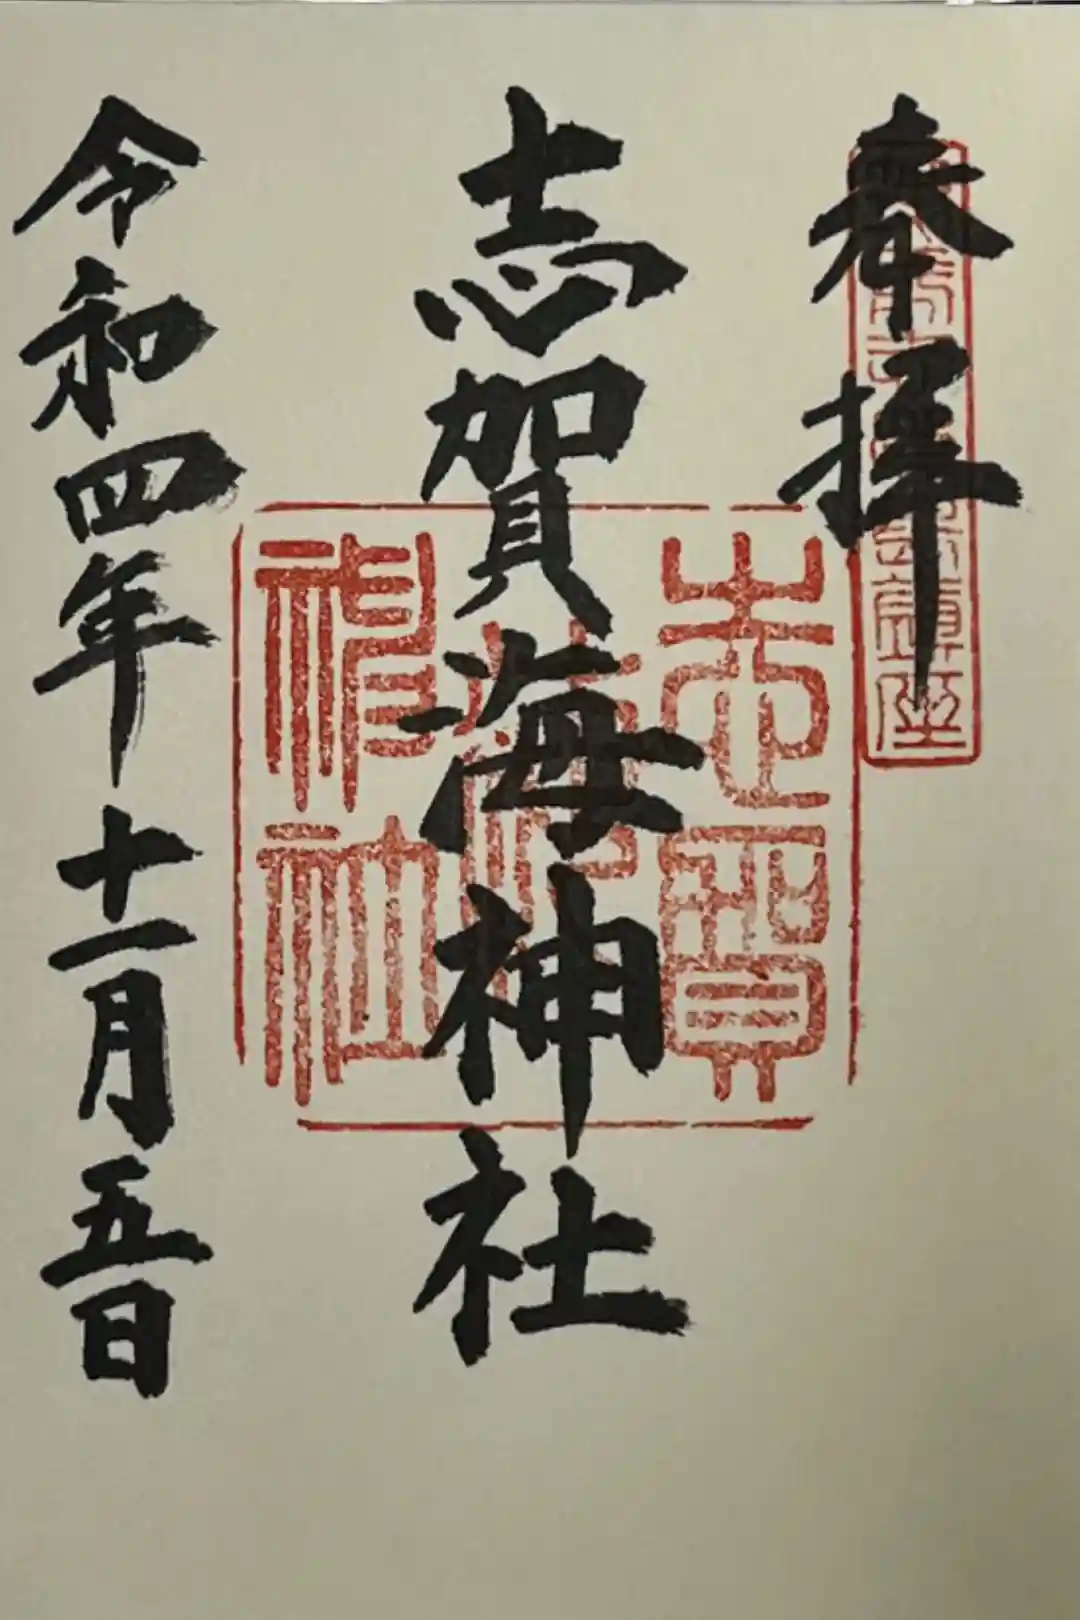 奉拝
志賀海神社
令和四年十一月五日
志賀
海
神社